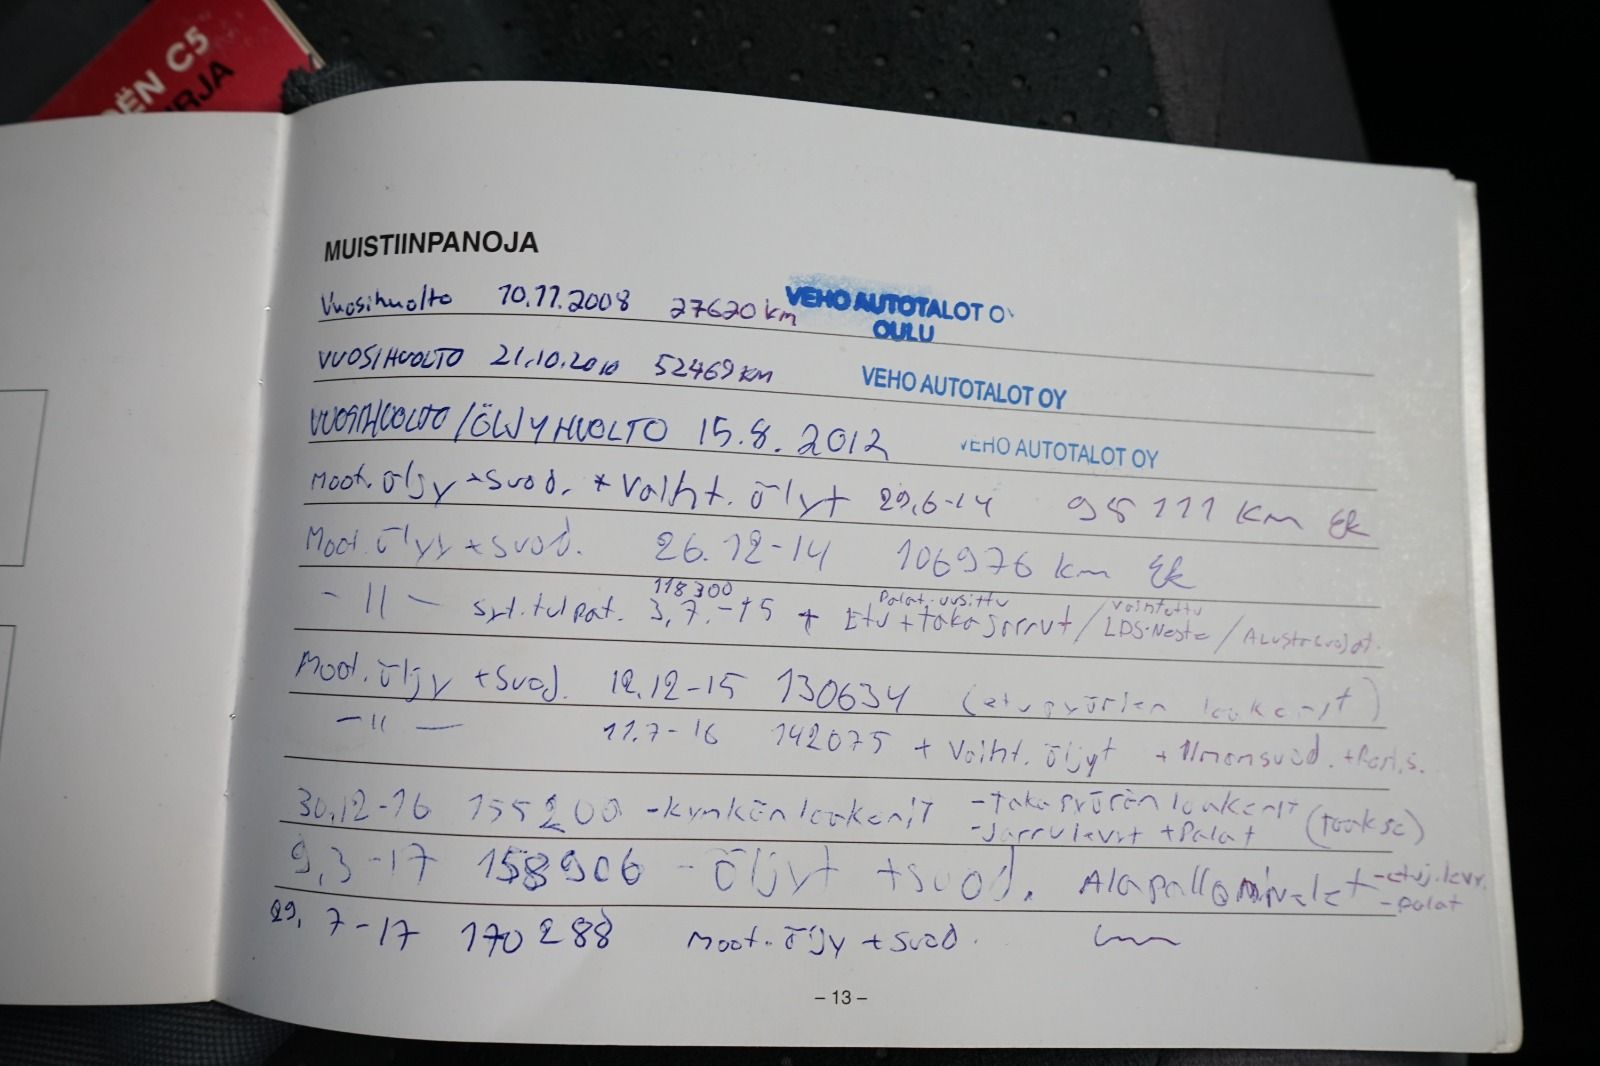 ËN C5
RJA
MUISTIINPANOJA
Vuosihuolto 10.11.2008 27620 km VEHO AUTOTALOT O
OULU
VUOSIHUOLTO 21.10.2010 52469 km VEHO AUTOTALOT OY
VUOSIHUOLTO/ÖLJYHUOLTO 15.8.2012 VEHO AUTOTALOT OY
Moot. öljy + suod. + Vaiht. öljyt 29.6-14 95 111 km EK
Moot. öljy + suod. 26.12-14 106976 km EK
118300 Palat uusittu vaihtettu
- 11 - syt.tulpat. 3.7.-15 + Etu + takajarrut / LDS-Neste / Alustasuojat.
Moot. öljy + suod. 12.12-15 130634 (etupyörien laakerit)
- 11 - 11.7-16 142075 + Vaiht. öljyt + Ilmansuod. + Rait.s.
30.12-16 155200 - kynkän laakerit - Takapyörän laakerit (taakse)
- Jarrulevyt + Palat
9.3-17 158906 - öljyt + suod. Alapallonivelet - etuj.levy.
- palat
29.7-17 170288 Moot. öljy + suod.
– 13 –